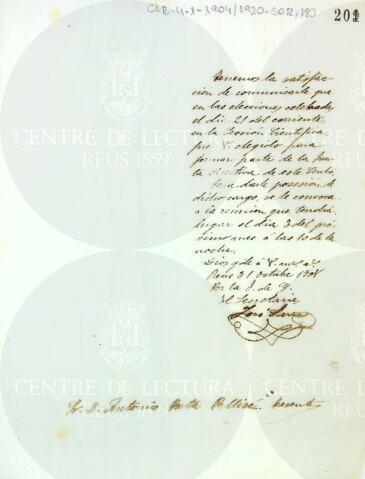 CLR-4-1-1904/1920-SOR,183
201
Tenemos la satisfac-
ción de comunicarle que
en las elecciones celebradas
el dia 21 del corriente
en la Sección Científica
fué V. elegido para
formar parte de la Jun-
ta directiva de este Centro.
Para darle posesión de
dicho cargo, se le convoca
a la reunión que tendrá
lugar el dia 3 del pró-
ximo mes á las 10 de la
noche.
Dios gde á V. ms. as.
Reus 31 Octubre 190
Por la J. de G.
El Secretario
José
Sr. D. Antonio Porta Pallisé. Presente
CENTRE DE LECTURA
REUS 1859
CENTRE DE LECTURA
REUS 1859